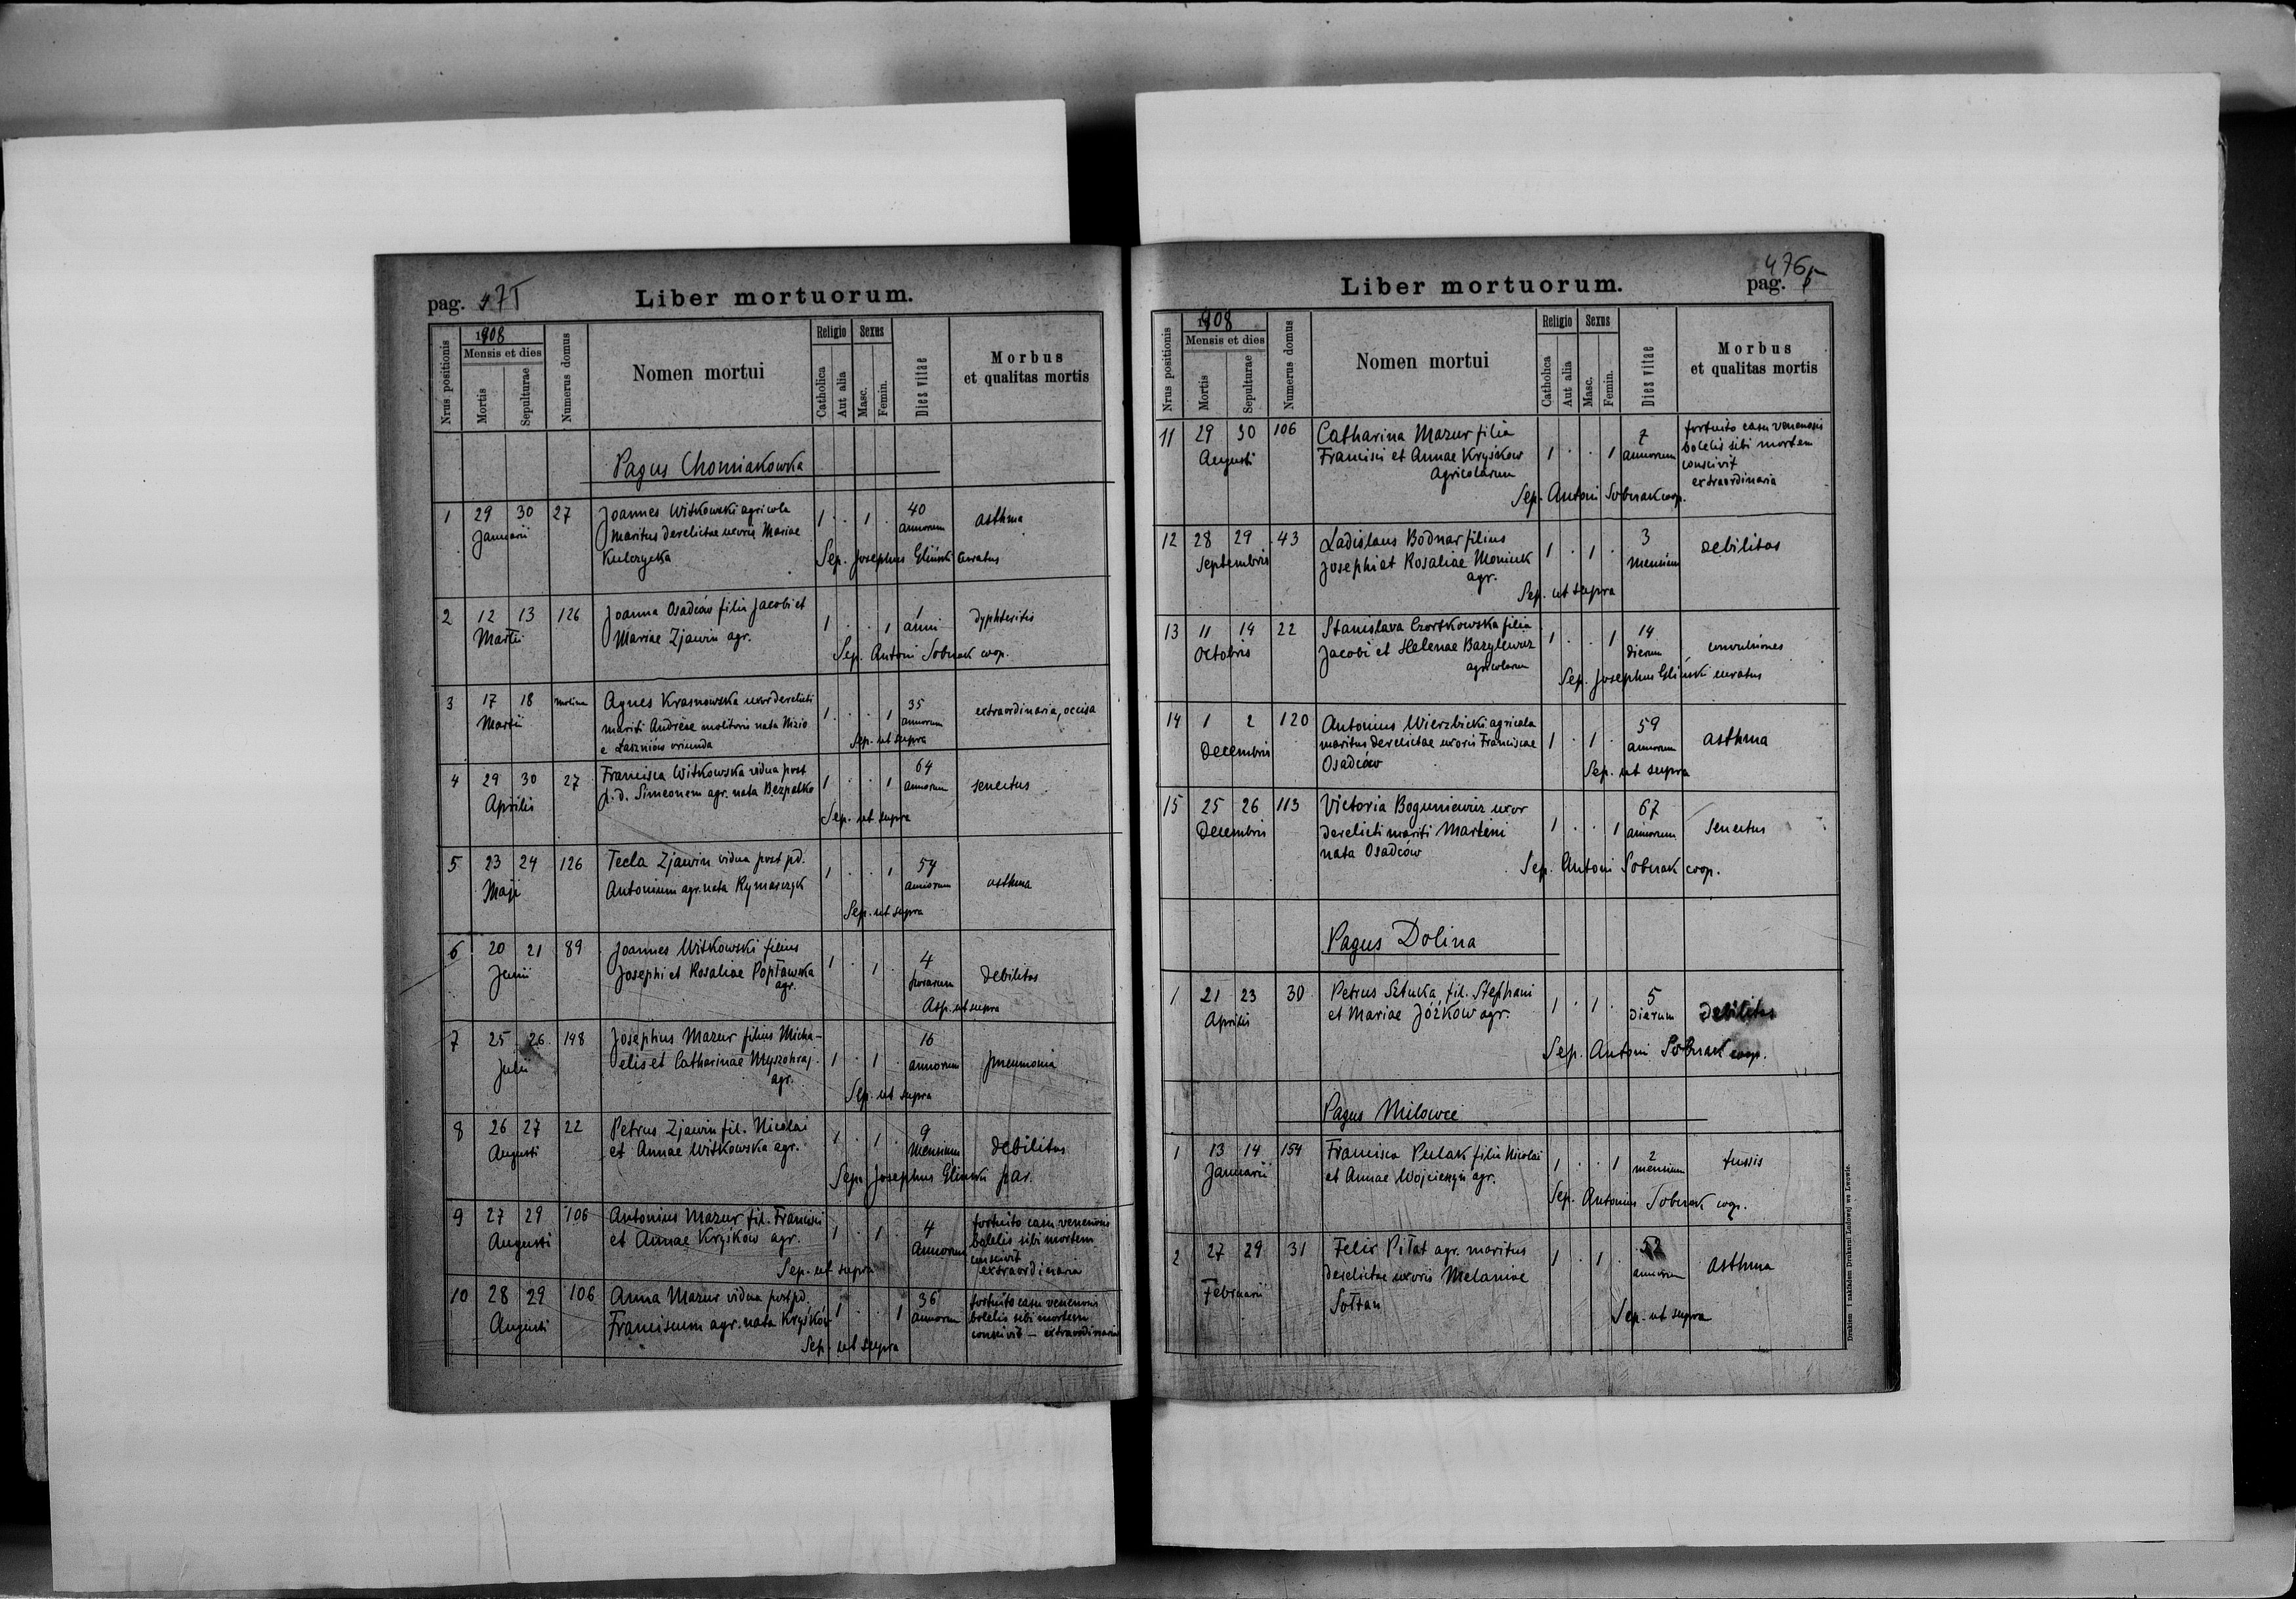 pag. 475
Liber mortuorum.
Nrus positionis
1908
Mensis et dies
Mortis
Sepulturae
Numerus domus
Nomen mortui
Religio
Catholica
Aut alia
Sexus
Masc.
Femin.
Dies vitae
Morbus
et qualitas mortis
Pagus Chomiakowka
1 29 30 27 Joannes Witkowski agricola 1 . 1 . 40 asthma
Januarii maritus derelictae uxoris Mariae annorum
Kulczycka Sep. Josephus Gliński curatus
2 12 13 126 Joanna Osadców filia Jacobi et 1 . . 1 1 dyphteritis
Martii Mariae Zjawin agr. anni
Sep. Antoni Sobczak coop.
3 17 18 molina Agnes Krasnowska uxor derelicti 1 . . 1 35 extraordinaria, occisa
Martii mariti Andreae molitoris nata Nizio annorum
e Łaszniów oriunda Sep. ut supra
4 29 30 27 Francisca Witkowska vidua post 1 . . 1 64 senectus
Aprilis p. d. Simeonem agr. nata Bezpalko annorum
Sep. ut supra
5 23 24 126 Tecla Zjawin vidua post pd. 1 . . 1 54 asthma
Maji Antonium agr. nata Rymarczyk annorum
Sep. ut supra
6 20 21 89 Joannes Witkowski filius 1 . 1 . 4 debilitas
Junii Josephi et Rosaliae Popławska horarum
agr.
Asp. ut supra
7 25 26 198 Josephus Mazur filius Micha- 1 . 1 . 16 pneumonia
Julii elis et Catharinae Myszohraj annorum
agr.
Sep. ut supra
8 26 27 22 Petrus Zjawin fil. Nicolai 1 . 1 . 9 debilitas
Augusti et Annae Witkowska agr. mensium
Sep. Josephus Gliński par.
9 27 29 106 Antonius Mazur fil. Francisci 1 . 1 . 4 fortuito casu venenosis
Augusti et Annae Kryśków agr. annorum boletis sibi mortem
conscivit
Sep. ut supra extraordinaria
10 28 29 106 Anna Mazur vidua post pd. 1 . . 1 36 fortuito casu venenosis
Augusti Franciscum agr. nata Kryśków annorum boletis sibi mortem
conscivit – extraordinaria
Sep. ut supra
476
Liber mortuorum.
pag.
Nrus positionis
1908
Mensis et dies
Mortis
Sepulturae
Numerus domus
Nomen mortui
Religio
Catholica
Aut alia
Sexus
Masc.
Femin.
Dies vitae
Morbus
et qualitas mortis
11 29 30 106 Catharina Mazur filia 1 . . 1 7 fortuito casu venenosis
Augusti Francisci et Annae Kryśków annorum boletis sibi mortem
agricolarum conscivit
extraordinaria
Sep. Antoni Sobczak coop.
12 28 29 43 Ladislaus Bodnar filius 1 . 1 . 3 debilitas
Septembris Josephi et Rosaliae Moniuk mensium
agr.
Sep. ut supra
13 11 14 22 Stanislava Czortkowska filia 1 . . 1 14 convulsiones
Octobris Jacobi et Helenae Bazylewicz dierum
agricolarum
Sep. Josephus Gliński curatus
14 1 2 120 Antonius Wierzbicki agricola 1 . 1 . 59 asthma
Decembris maritus derelictae uxoris Franciscae annorum
Osadców Sep. ut supra
15 25 26 113 Victoria Boguniewicz uxor 1 . . 1 67 senectus
Decembris derelicti mariti Martini annorum
nata Osadców
Sep. Antoni Sobczak coop.
Pagus Dolina
1 21 23 30 Petrus Sztucka, fil. Stephani 1 . 1 . 5 debilitas
Aprilis et Mariae Józków agr. dierum
Sep. Antoni Sobczak coop.
Pagus Milowce
1 13 14 154 Francisca Pulak filia Nicolai 1 . . 1 2 tussis
Januarii et Annae Wojciechyn agr. mensium
Sep. Antonius Sobczak coop.
2 27 29 31 Felix Piłat agr. maritus 1 . 1 . 52 asthma
Februarii derelictae uxoris Melaniae annorum
Sołtan
Sep. ut supra
Drukiem i nakładem Drukarni Ludowej we Lwowie.